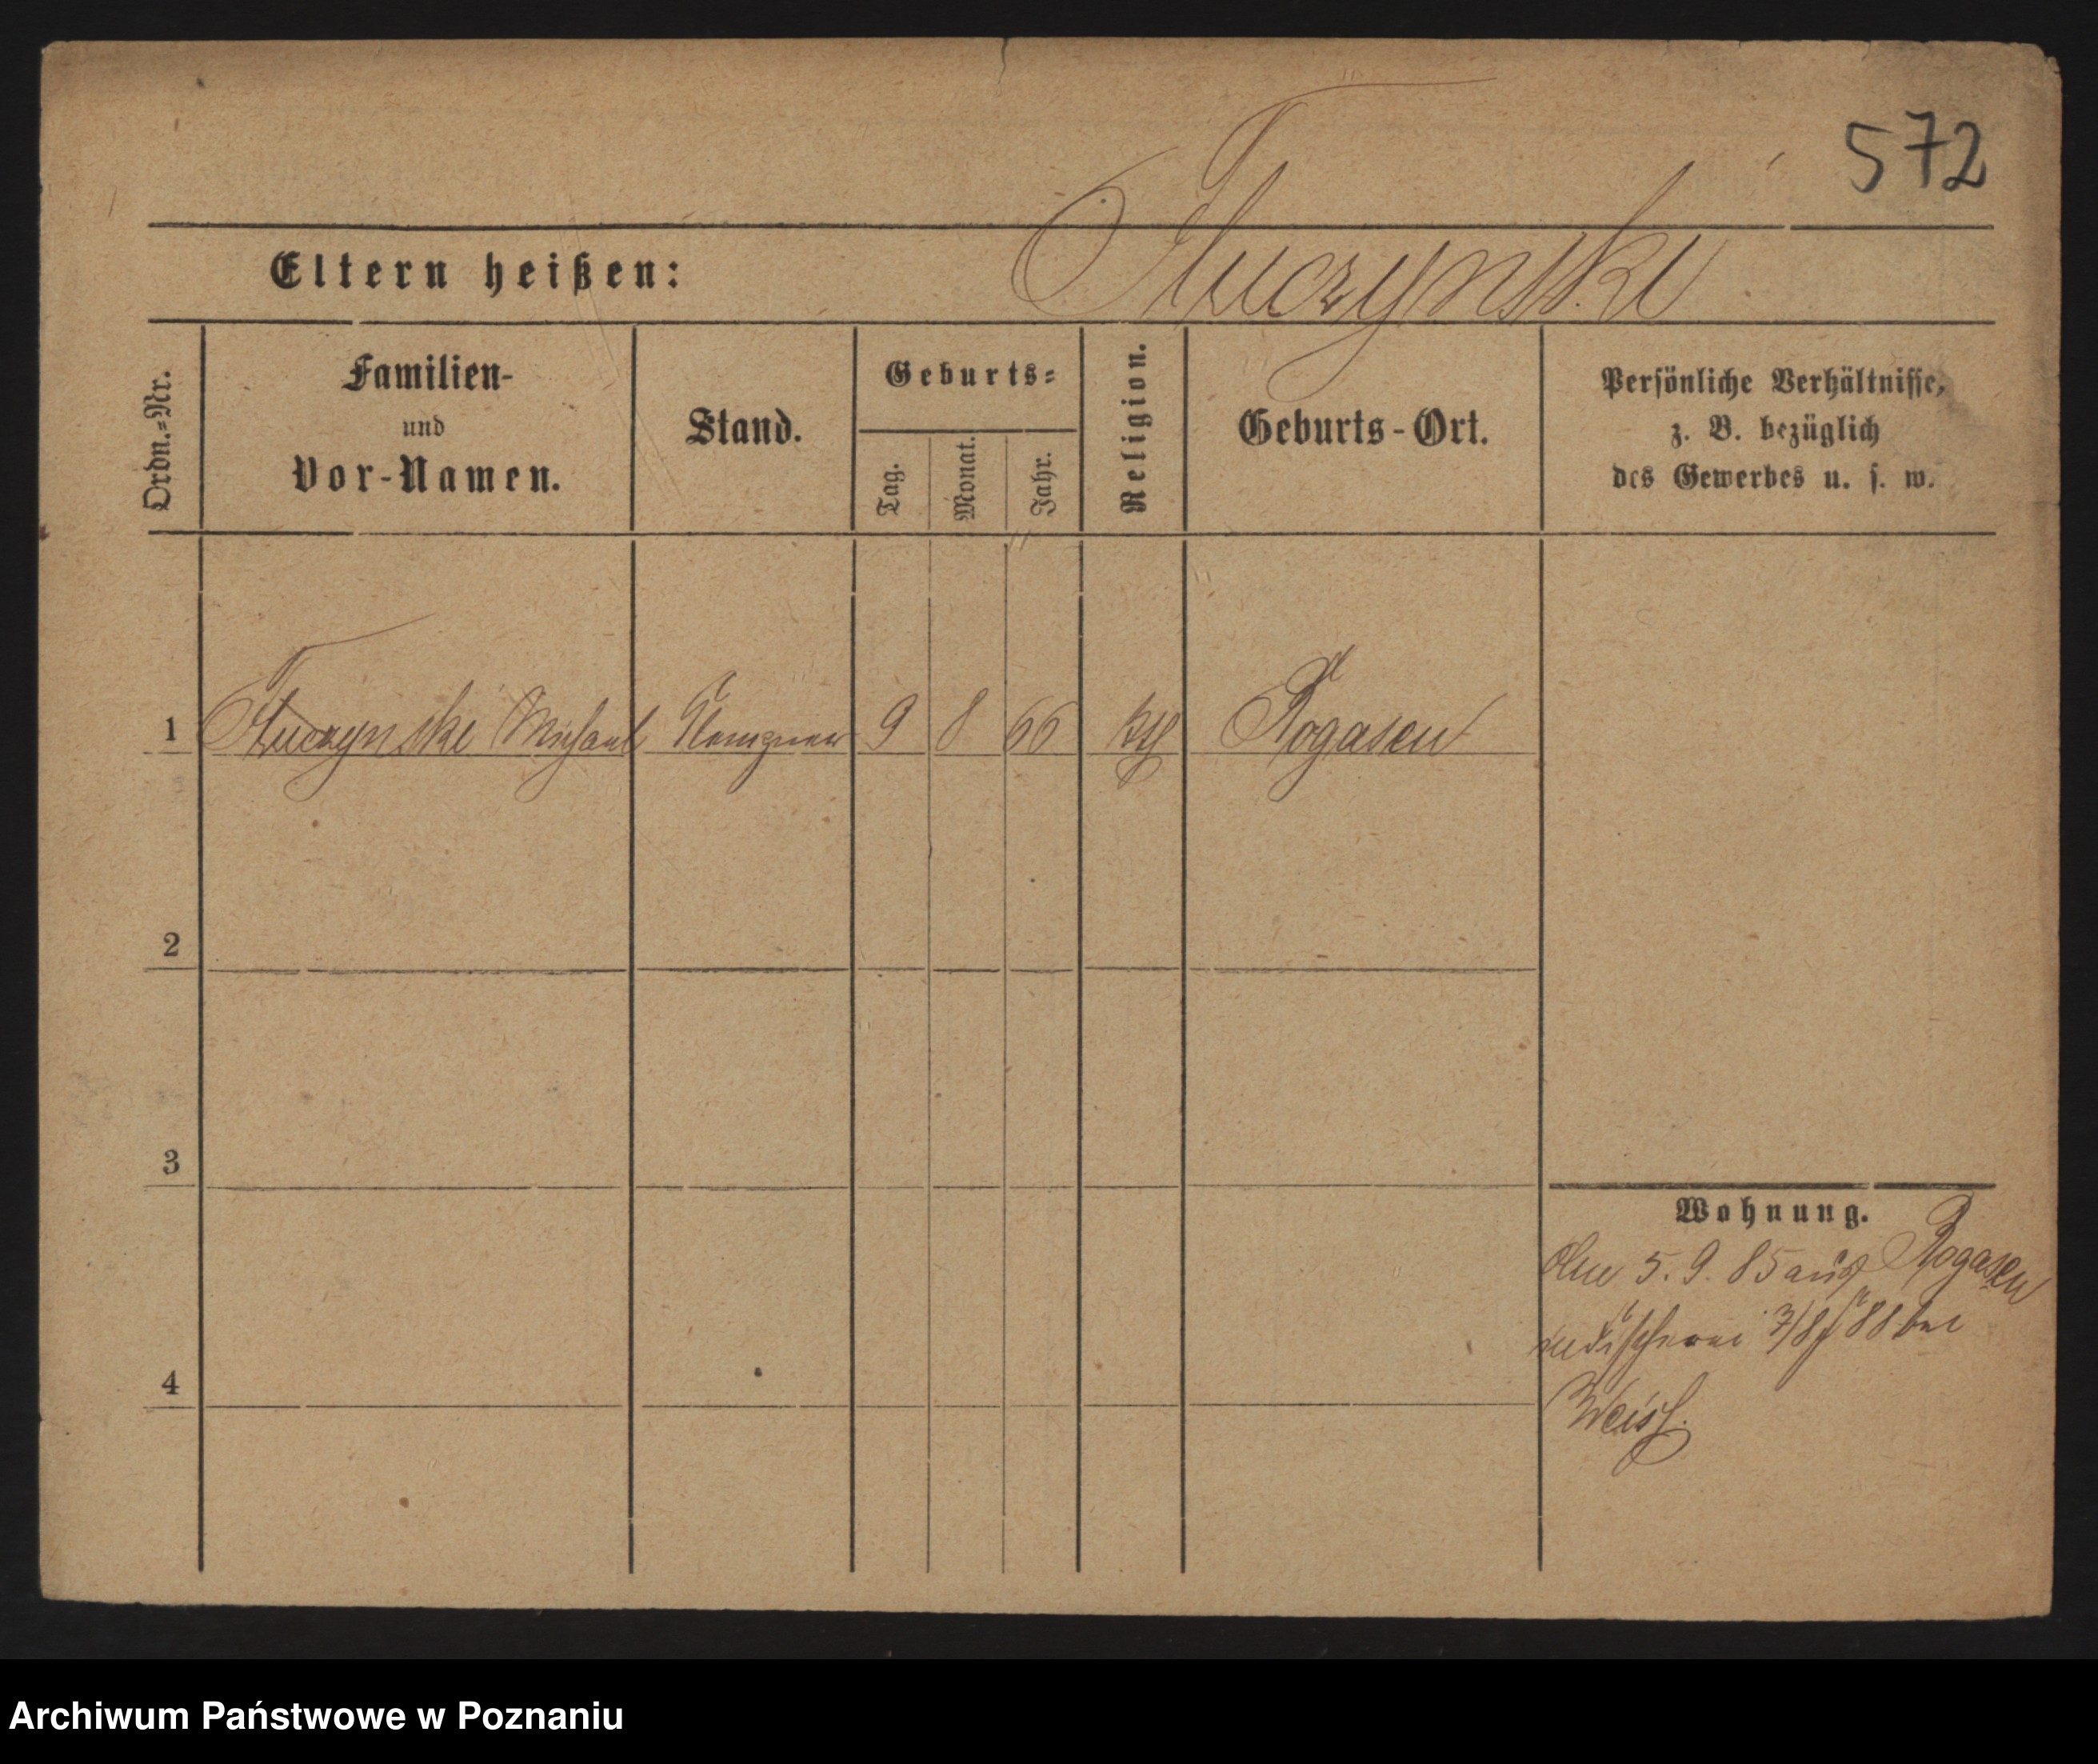 572
Eltern heißen: Tluczynski
Ordn.=Nr.
Familien-
und
Vor-Namen.
Stand.
Geburts=
Tag.
Monat.
Jahr.
Religion.
Geburts-Ort.
Persönliche Verhältnisse,
z. B. bezüglich
des Gewerbes u. s. w.
1 Tluczynski Michael Klempner 9 8 66 kth Rogasen
2
3
Wohnung.
5. 9. 85 aus Rogasen
88 bei
4
Archiwum Państwowe w Poznaniu